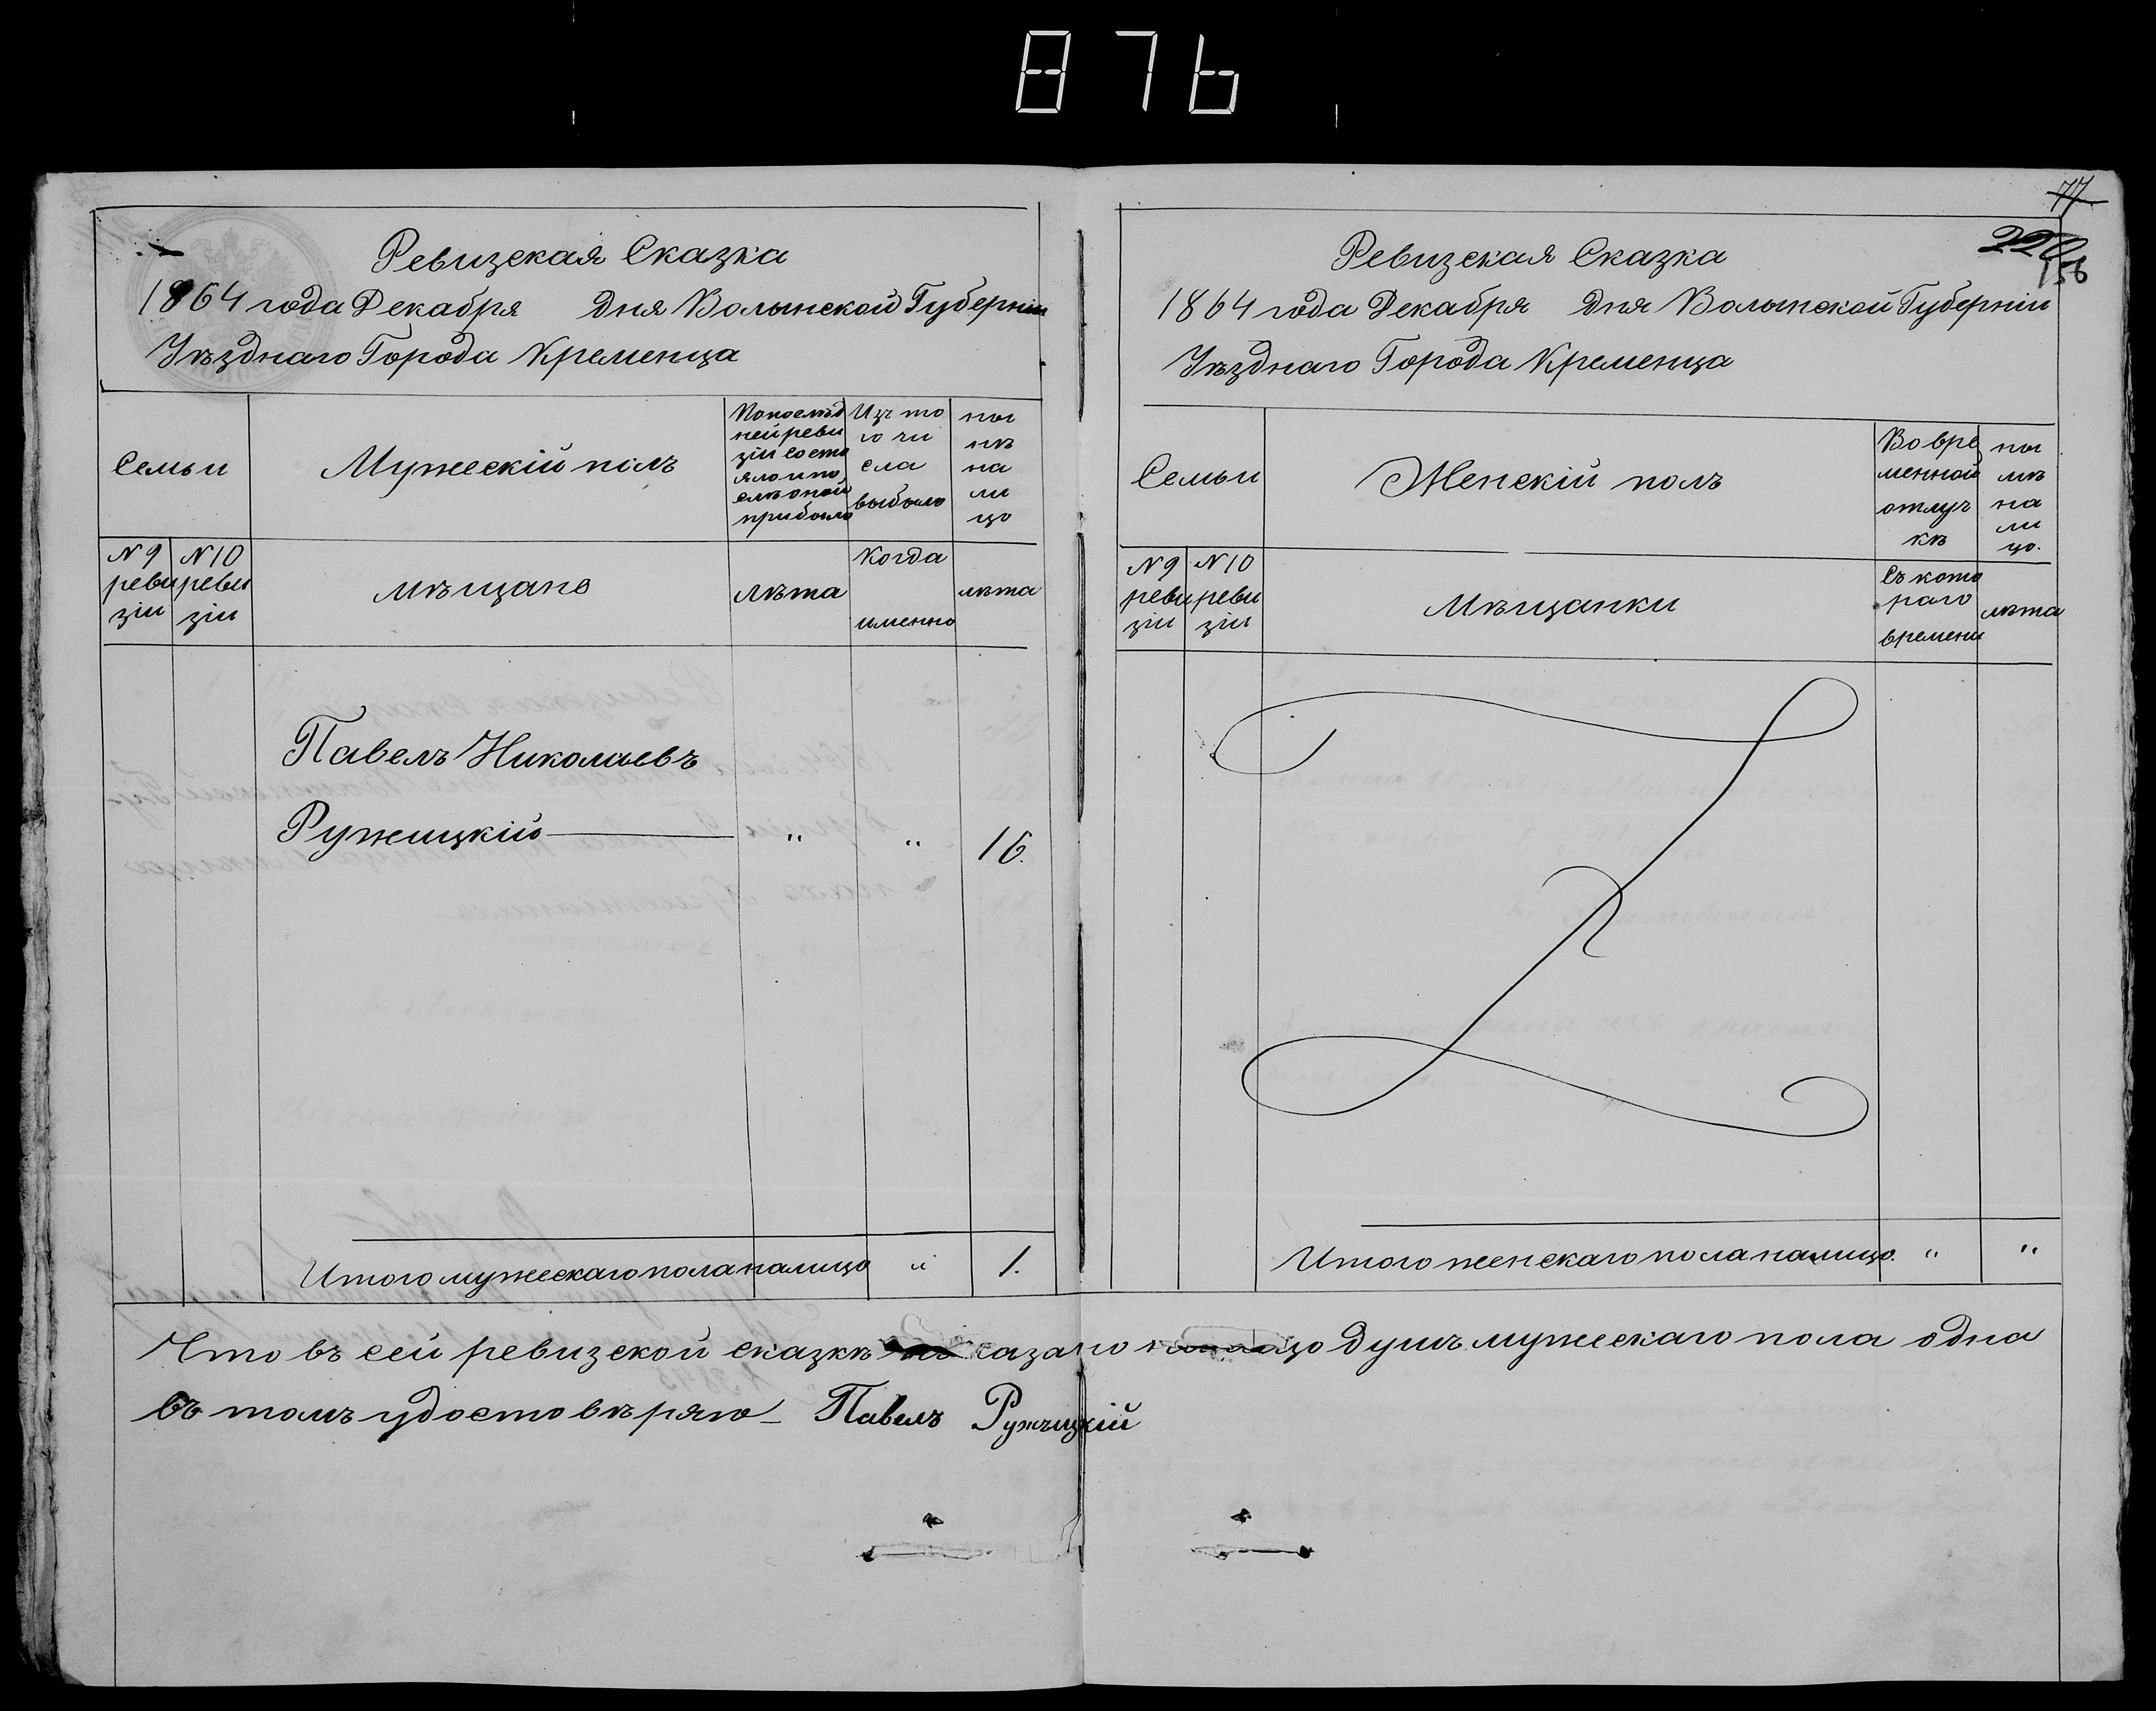 876
Ревизская Сказка
1864 года Декабря дня Волынской Губерніи
Уѣзднаго Города Кременца
Семьи
Мужескій полъ
По послѣд
ней реви
зіи состо
яло и по
слѣ оной
прибыло
Изъ то
го чи
сла
выбыло
ны
нѣ
на
ли
цо
№ 9
реви
зіи
№ 10
реви
зіи
мѣщане
лѣта
когда
именно
лѣта
Павелъ Николаевъ
Ружицкій — " " 16.
Итого мужескаго пола налицо " 1.
77
226
156
Ревизская Сказка
1864 года Декабря дня Волынской Губерніи
Уѣзднаго Города Кременца
Семьи
Женскій полъ
Во вре
менной
отлуч
кѣ
ны
нѣ
на
ли
цо.
№ 9
реви
зіи
№ 10
реви
зіи
Мѣщанки
Съ кото
раго
времени
лѣта
Итого женскаго пола налицо. " "
Что въ сей ревизской сказкѣ показано налицо душъ мужескаго пола одна
въ томъ удостовѣряю Павелъ Ружицкій